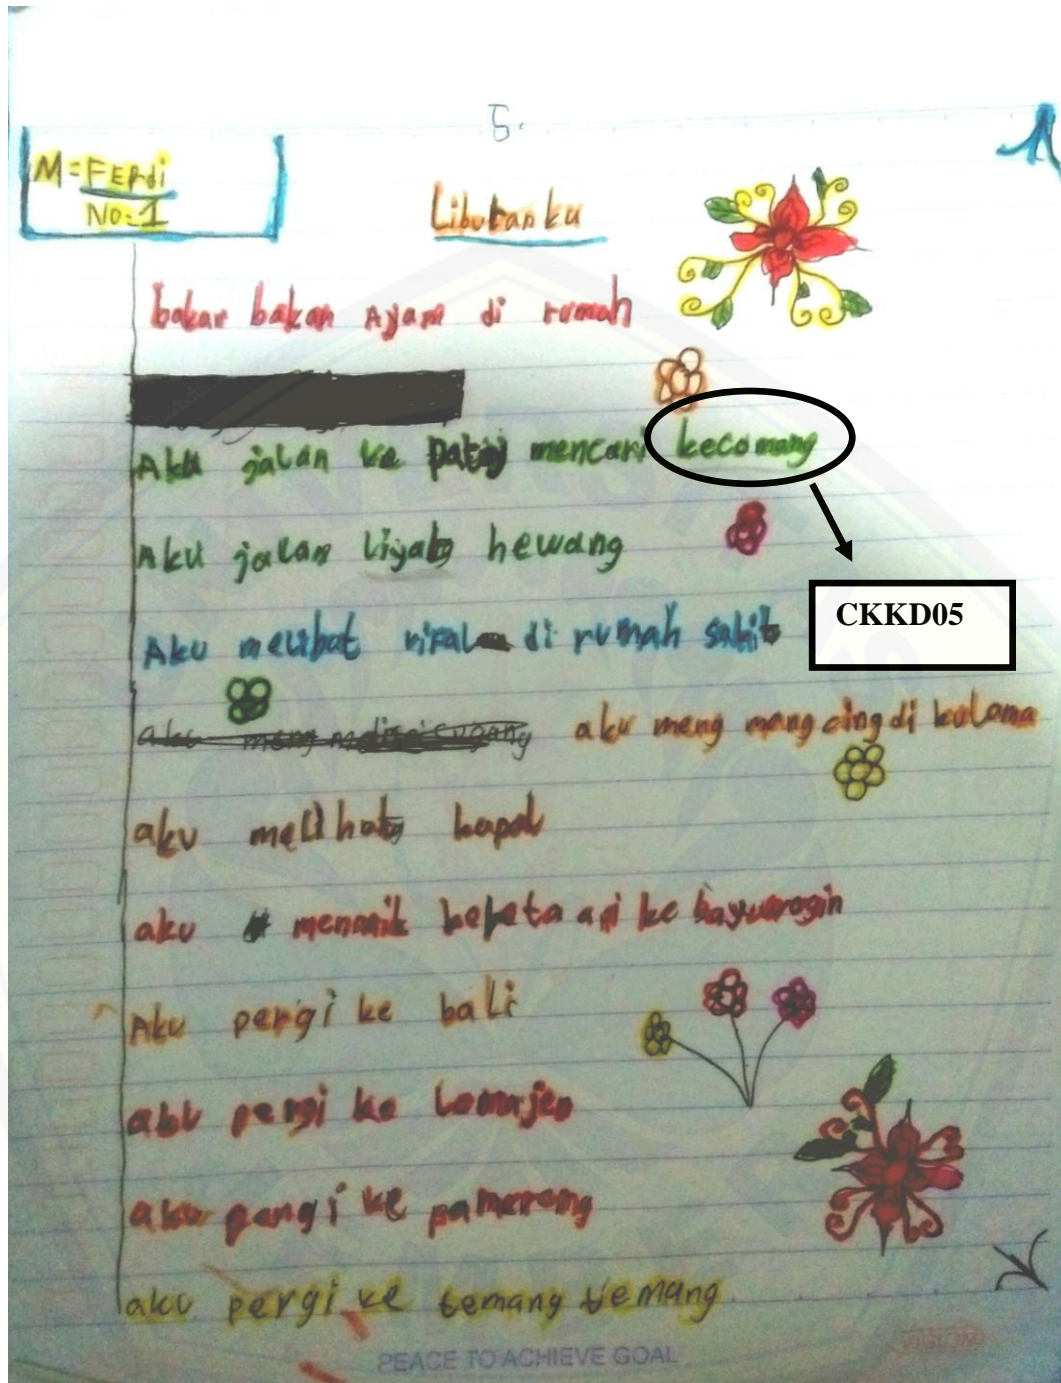 5.
M=FERdi
NO=1
Liburanku
bakar bakan Ayam di rumah
Aku jalan ke mencari kecomang
Aku jalan liyat hewang
CKKD05
Aku melihat di rumah sakit
aku meng mang cing di kolama
aku melihat kapal
aku menaik kepeta api ke
Aku pergi ke bali
aku pergi ke
aku pergi ke pamerang
aku pergi ke temang temang
PEACE TO ACHIEVE GOAL